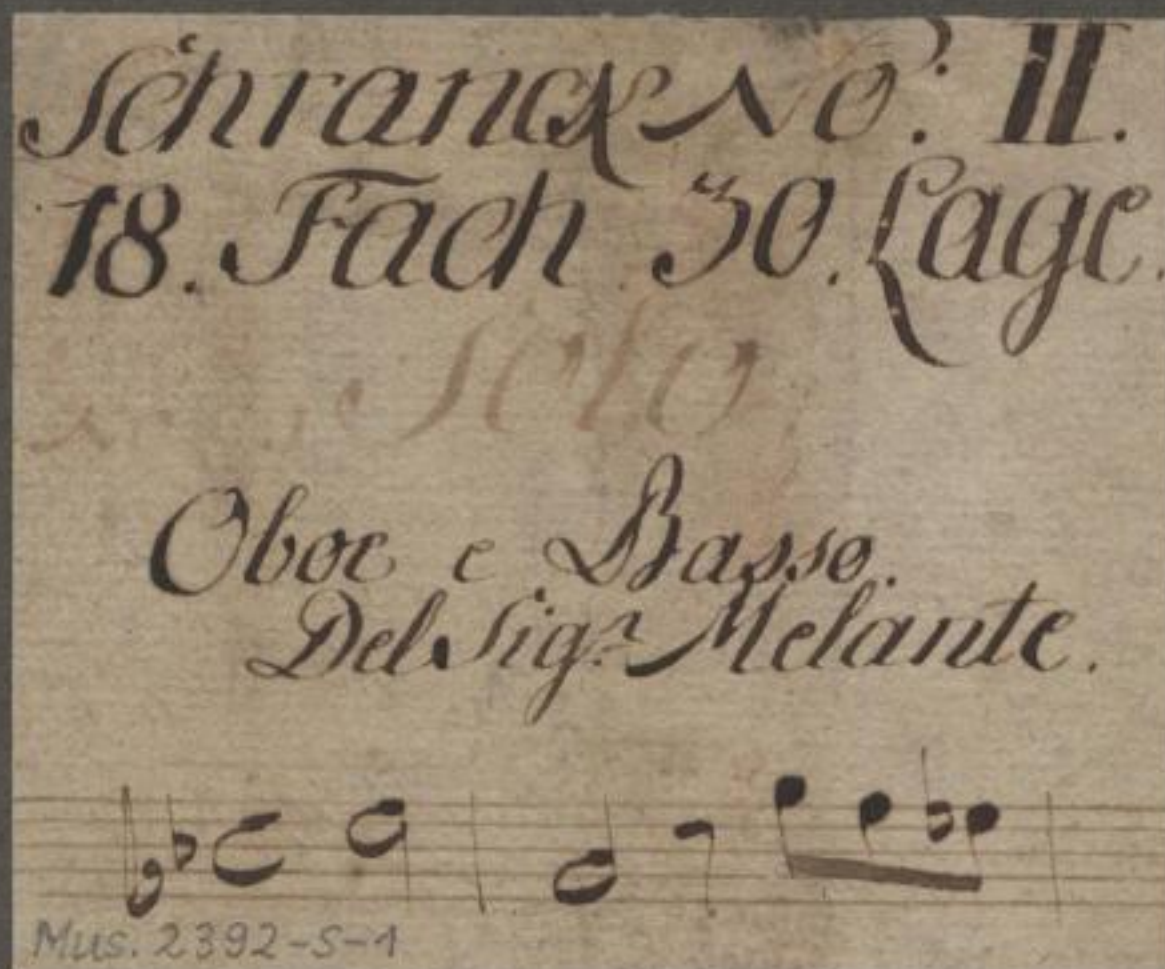 Schranck No: II.
18. Fach 30. Lage.
Solo
Oboe e Basso.
Del Sig.r Melante.
Mus. 2392-S-1